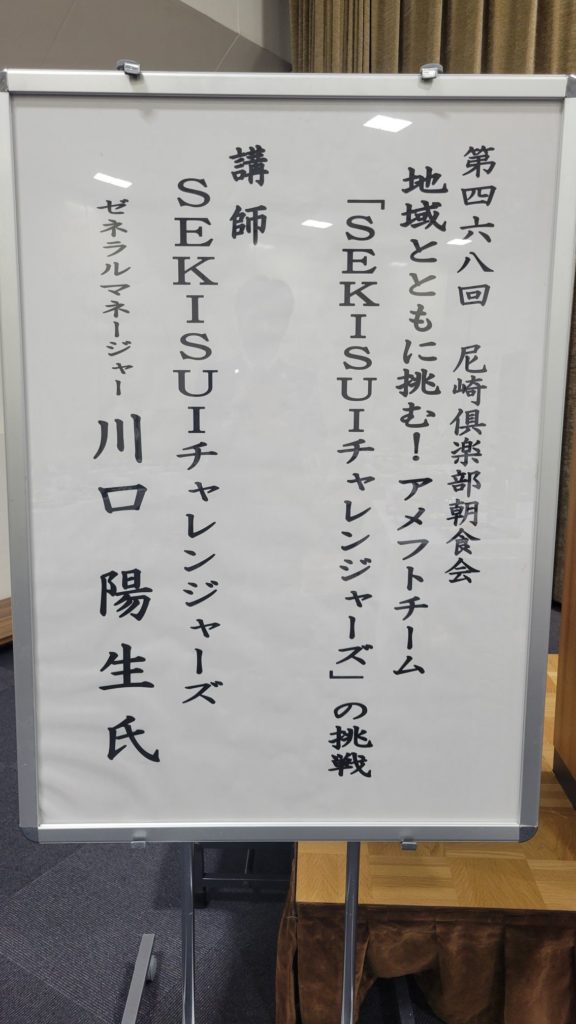 第四六八回 尼崎倶楽部朝食会
地域とともに挑む！アメフトチーム
「SEKISUIチャレンジャーズ」の挑戦
講師
SEKISUIチャレンジャーズ
ゼネラルマネージャー 川口 陽生氏